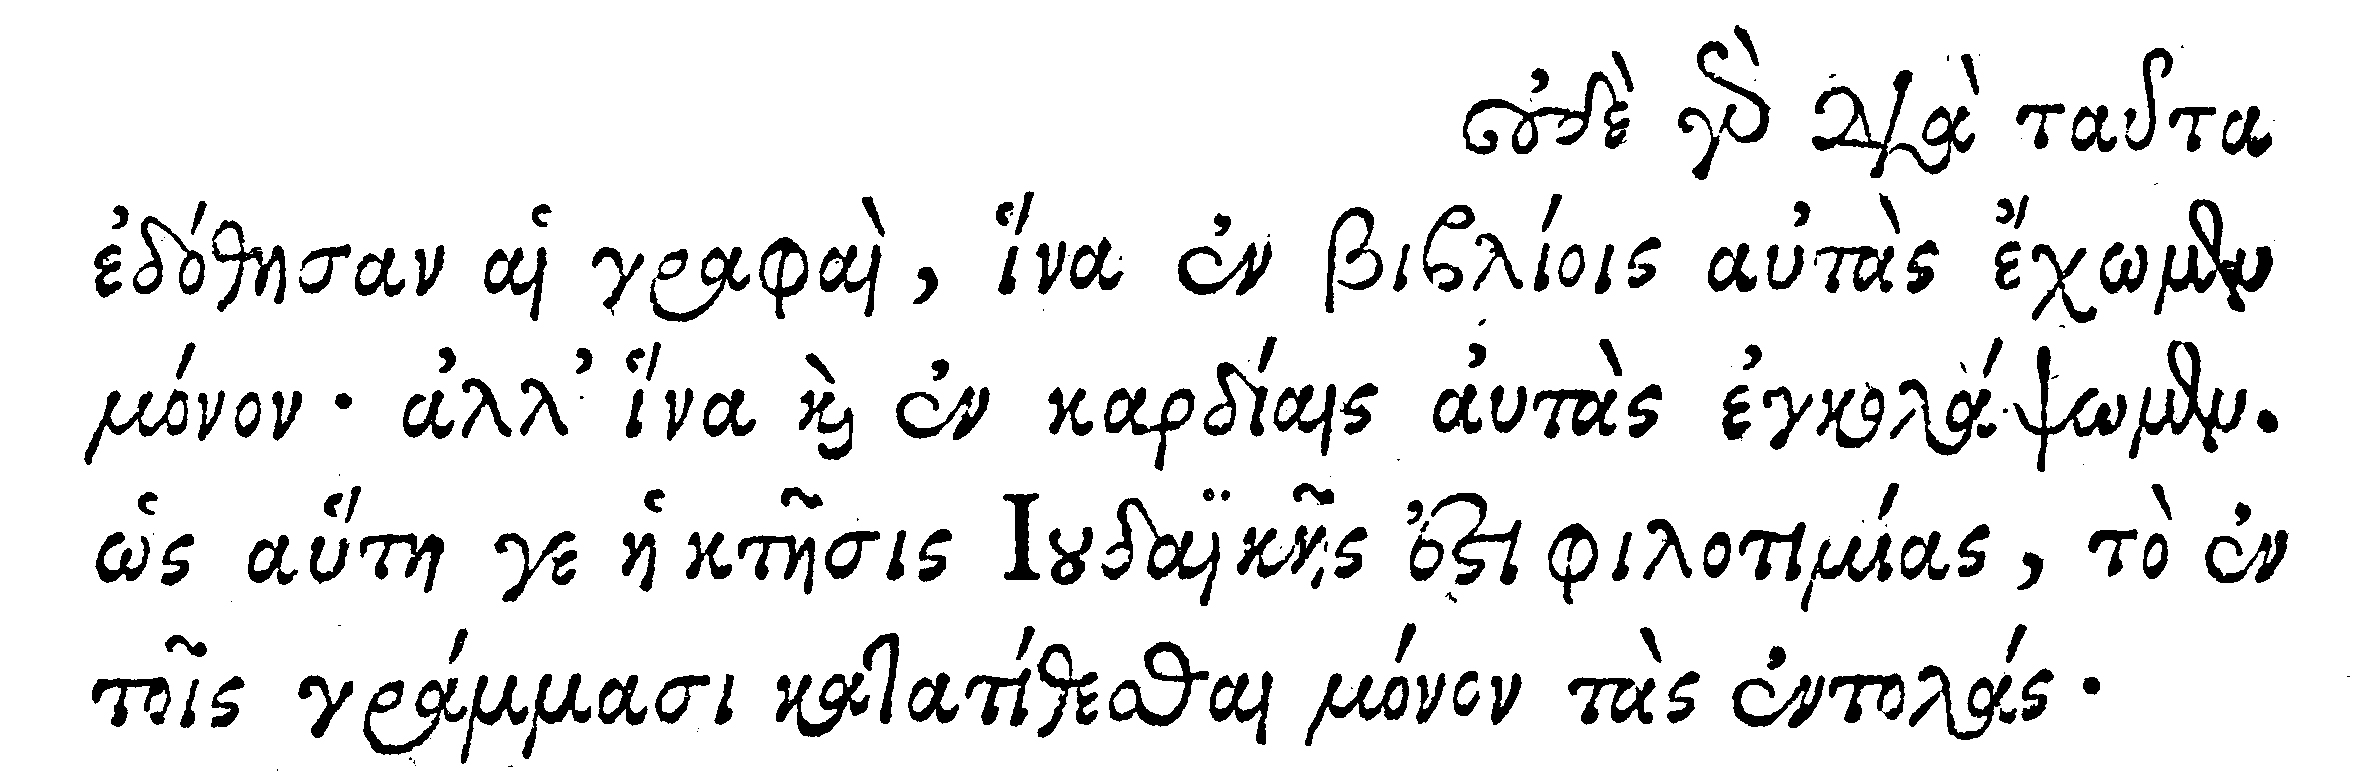 οὐδὲ γὰρ διὰ ταῦτα
ἐδόθησαν αἱ γραφαὶ, ἵνα ἐν βιβλίοις αὐτὰς ἔχωμεν
μόνον· ἀλλ’ ἵνα καὶ ἐν καρδίαις ἀυτὰς ἐγκολάψωμεν.
ὡς αὕτη γε ἡ κτῆσις Ιουδαϊκῆς ἐστι φιλοτιμίας, τὸ ἐν
τοῖς γράμμασι κατατίθεσθαι μόνον τὰς ἐντολάς·